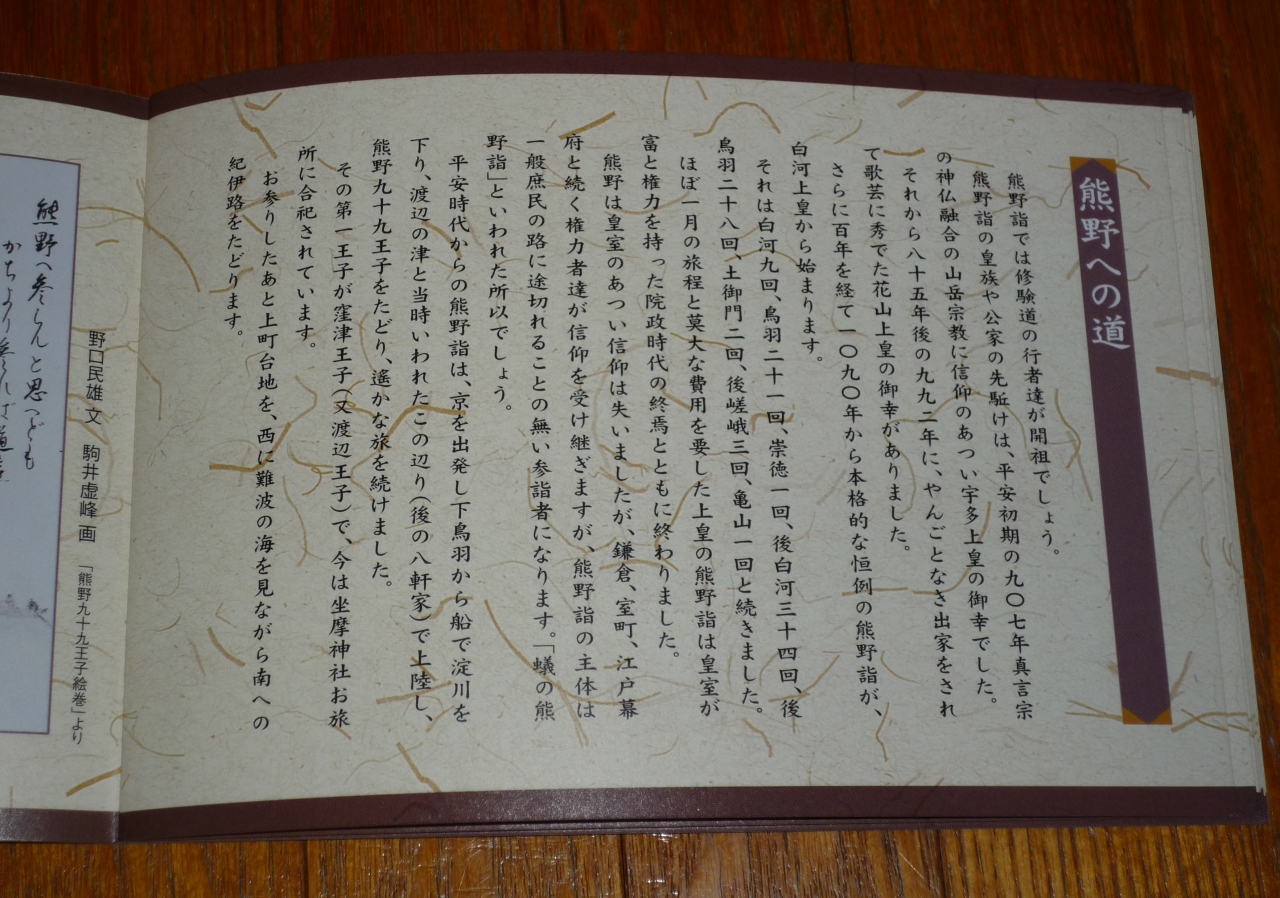 熊野への道
熊野詣では修験道の行者達が開祖でしょう。
熊野詣の皇族や公家の先駈けは、平安初期の九〇七年真言宗
の神仏融合の山岳宗教に信仰のあつい宇多上皇の御幸でした。
それから八十五年後の九九二年に、やんごとなき出家をされ
て歌芸に秀でた花山上皇の御幸がありました。
さらに百年を経て一〇九〇年から本格的な恒例の熊野詣が、
白河上皇から始まります。
それは白河九回、鳥羽二十一回、崇徳一回、後白河三十四回、後
鳥羽二十八回、土御門二回、後嵯峨三回、亀山一回と続きました。
ほぼ一月の旅程と莫大な費用を要した上皇の熊野詣は皇室が
富と権力を持った院政時代の終焉とともに終わりました。
熊野は皇室のあつい信仰は失いましたが、鎌倉、室町、江戸幕
府と続く権力者達が信仰を受け継ぎますが、熊野詣の主体は
一般庶民の路に途切れることの無い参詣者になります。「蟻の熊
野詣」といわれた所以でしょう。
平安時代からの熊野詣は、京を出発し下鳥羽から船で淀川を
下り、渡辺の津と当時いわれたこの辺り(後の八軒家)で上陸し、
熊野九十九王子をたどり、遙かな旅を続けました。
その第一王子が窪津王子(又渡辺王子)で、今は坐摩神社お旅
所に合祀されています。
お参りしたあと上町台地を、西に難波の海を見ながら南への
紀伊路をたどります。
野口民雄 文 駒井虚峰 画 「熊野九十九王子絵巻」より
熊野へ参らんと思へども
かちより参れば道